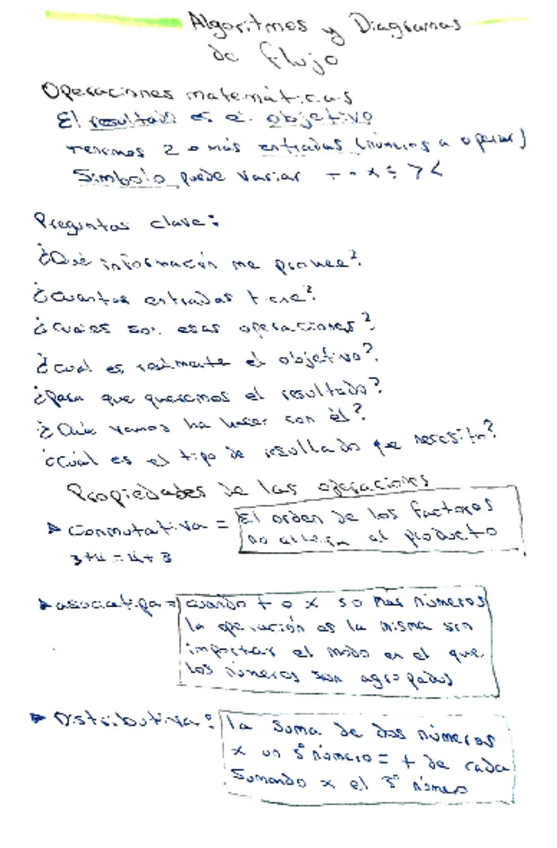 Algoritmos y Diagramas
de flujo
Operaciones matemáticas
El resultado es el objetivo
Tenemos 2 o más entradas (números a operar)
Símbolo puede variar + - x ÷ > <
Preguntas clave:
¿Qué información me provee?
¿Cuantas entradas tiene?
¿Cuáles son esas operaciones?
¿Cuál es realmente el objetivo?
¿Para que queremos el resultado?
¿Qué vamos ha hacer con él?
¿Cuál es el tipo de resultado que necesito?
Propiedades de las operaciones
Conmutativa = El orden de los factores
no altera al producto
3+4 = 4+3
asociativa = cuando + o x 3 o más números
la operación es la misma sin
importar el modo en el que
los números son agrupados
Distributiva: la suma de dos números
x un 3º número = + de cada
sumando x el 3º número